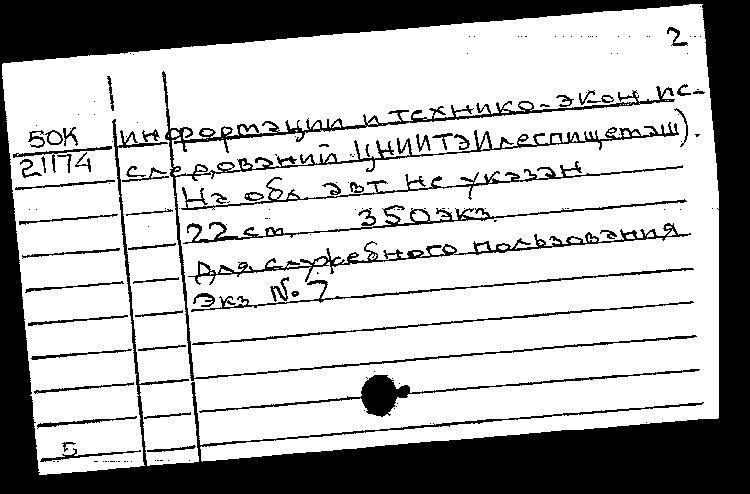 2
50К информации и технико-экон. ис-
21174 следований (ЦНИИТЭИлеспищемаш).
На обл. авт. не указан.
22 см. 350 экз.
Для служебного пользования
Экз. № 7.
5